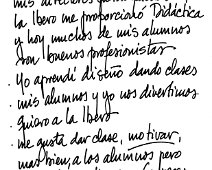 mis
la Ibero me proporcionó Didáctica
y hoy muchos de mis alumnos
son buenos profesionistas
. Yo aprendí diseño dando clases
. mis alumnos y yo nos divertimos
. quiero a la Ibero
. me gusta dar clase, motivar,
mas bien, a los alumnos pero